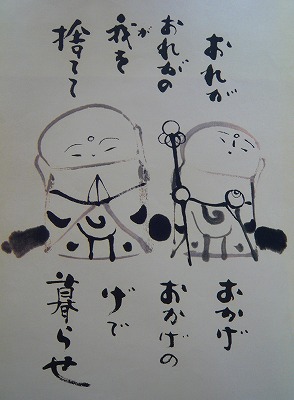 おれが
おれがの
我を
が
捨てて
おかげ
おかげの
げで
暮らせ